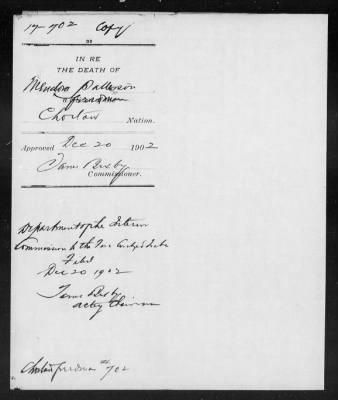 17-702 Copy
IN RE
THE DEATH OF
Mendora Patterson
a freedman
Choctaw Nation.
Approved Dec 20 1902
Tams Bixby
Commissioner.
Department of the Interior
Commission to the Five Civilized Tribes
Filed
Dec 20 1902
Tams Bixby
acting Chairman
Choctaw freedman 702